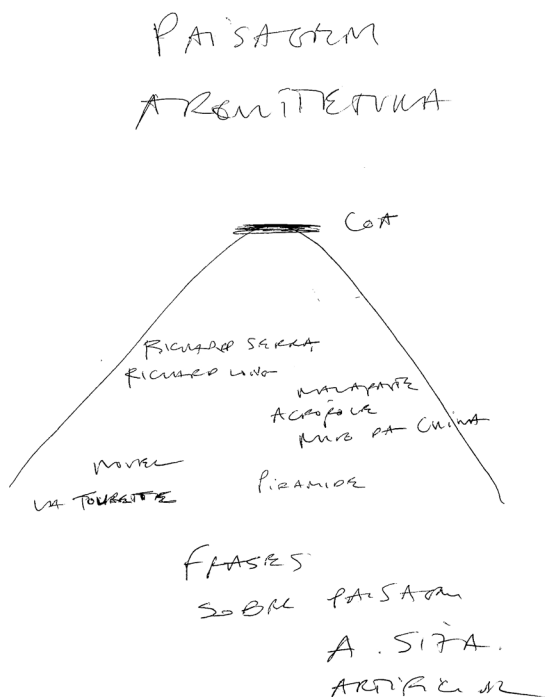 PAISAGEM
ARQUITETURA
COA
RICHARD SERRA
RICHARD LONG
MALAPARTE
ACRÓPOLE
MURO DA CHINA
NOVEL
PIRAMIDE
LA TOURETTE
FRASES
SOBRE PAISAGEM
A. SIZA.
ARTIFICIAL